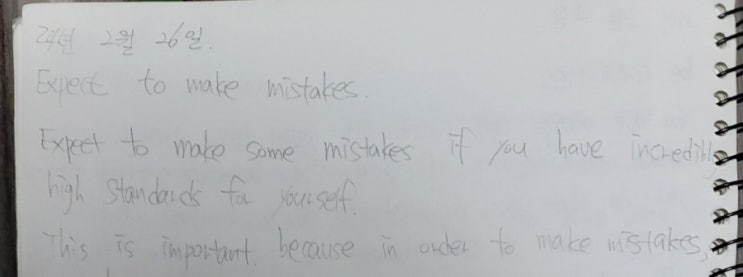 24년 2월 26일.
Expect to make mistakes.
Expect to make some mistakes if you have incredibly
high standards for yourself.
This is important. because in order to make mistakes,